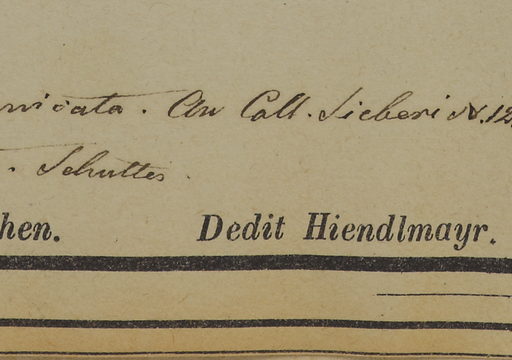 An Coll. Sieberi N. 12
Schultes
hen. Dedit Hiendlmayr.